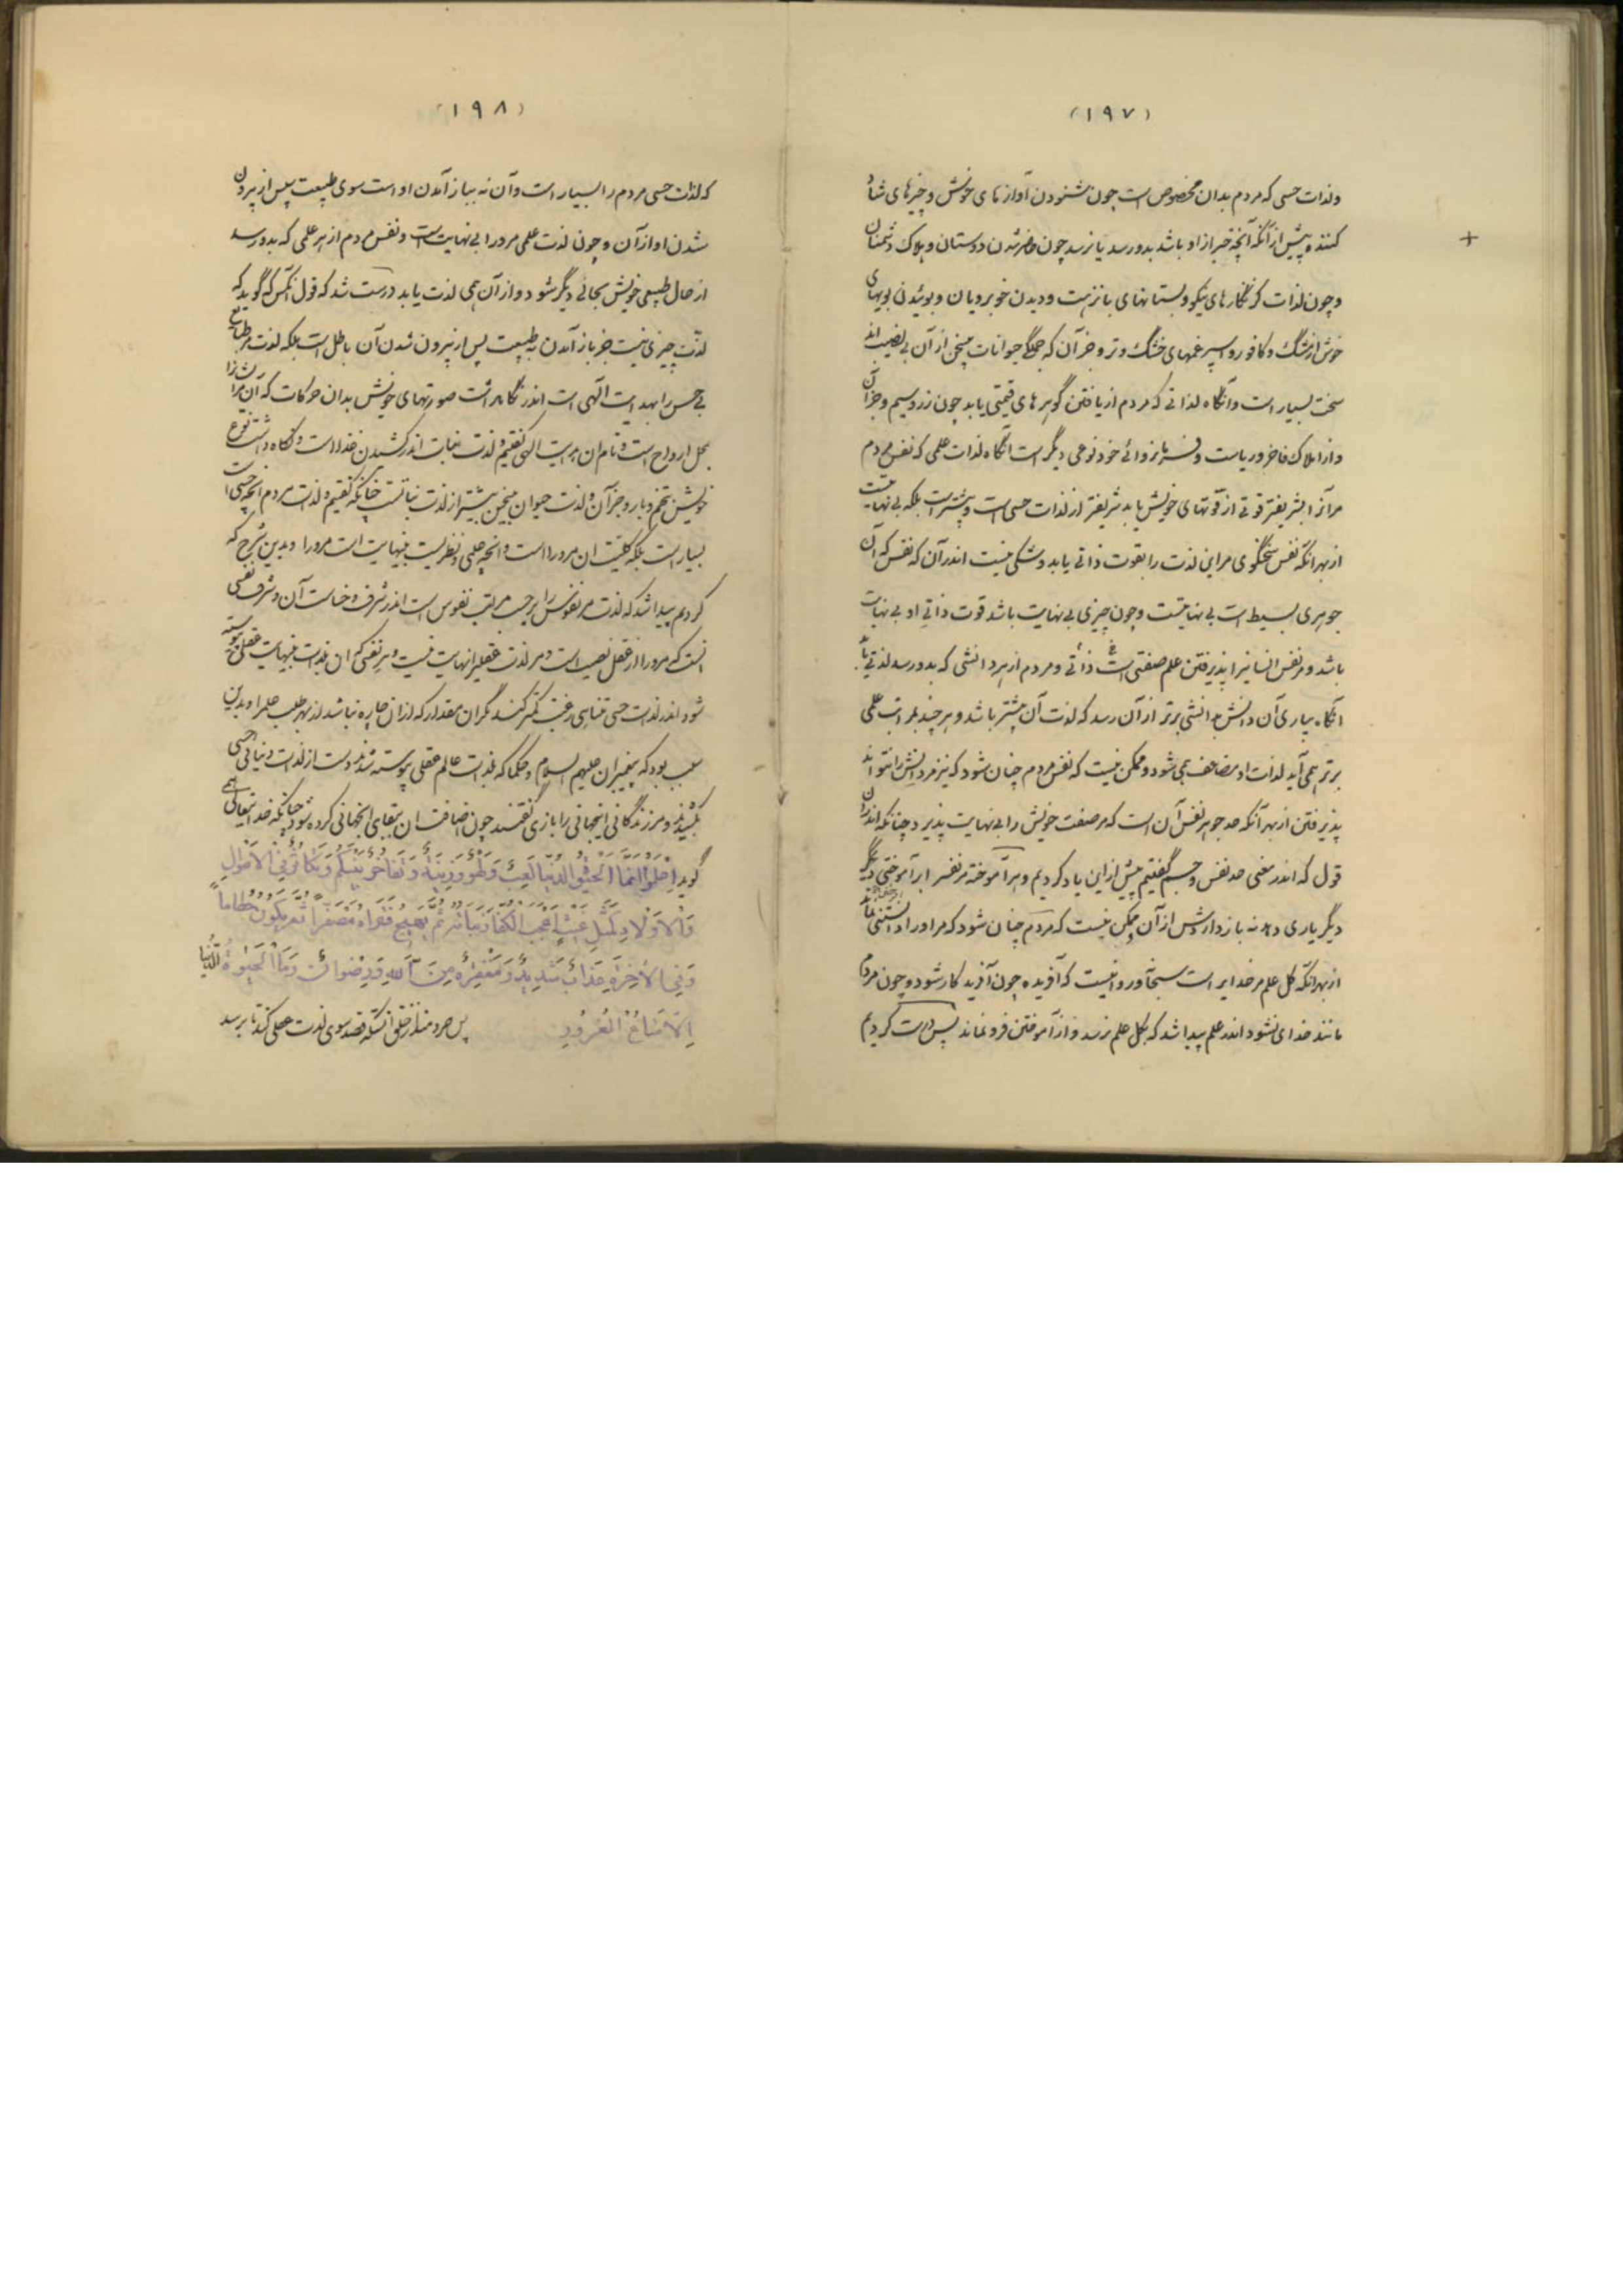 (۱۹۷)
ولذات حسی که مردم بدان مخصوص است چون شنودن آوازهای خوش و خبرهای شاد
کننده پیش از آنکه آنچه خبر از او باشد بدو رسد یا نرسد چون حاضر شدن دوستان و هلاک دشمنان
و چون لذات که از نگارهای نیکو و بستانهای با نزهت و دیدن خوبرویان و بوئیدن بویهای
خوش از مشک و کافور و اسپرغمهای خشک و تر و جز آن که جملگی حیوانات بی سخن از آن بی نصیب اند
سخت بسیار است وآنگاه لذاتی که مردم از یافتن گوهرهای قیمتی یابد چون زر و سیم و جز آن
و از املاک فاخر و ریاست و فرمانروائی خود نوعی دیگر است آنگاه لذات علمی که نفس مردم
مر آنرا بشریفتر قوتی از قوتهای خویش یابد شریفتر از لذات حسی است و بیشتر است بلکه بی نهایتست
از بهر آنکه نفس سخنگوی مر این لذت را بقوت ذاتی یابد و شکی نیست اندر آن که نفس که آن
جوهری بسیط است بی نهایتست و چون چیزی بی نهایت باشد قوت ذاتی او بی نهایت
باشد و مر نفس انسانیرا پذیرفتن علم صفتی است ذاتی و مردم از هر دانشی که بدو رسد لذتی یابد
آنگاه بیاری آن دانش بدانشی برتر از آن رسد که لذت آن بیشتر باشد و هر چند بمراتب علمی
برتر همی آید لذات او مضاعف همی شود و ممکن نیست که نفس مردم چنان شود که نیز مر دانش را نتواند
پذیرفتن از بهر آنکه حد جوهر نفس آن است که مر صفت خویش را بی نهایت پذیرد چنانکه اندران
قول که اندر معنی حد نفس و جسم گفتیم پیش از این یاد کردیم و هر آموخته مر نفس را بر آموختنی دیگر
دیگر یاری دهد نه باز داردش از آن و ممکن نیست که مردم چنان شود که مر او را دانستنی نماند
از بهر آنکه کل علم مر خدایراست سبحانه و روا نیست که آفریده چون آفریدگار شود و چون مردم
مانند خدای نشود اندر علم پیدا شد که بکل علم نرسد و از آموختن فرو نماند پس درست کردیم
(۱۹۸)
که لذات حسی مردم را بسیار است وآن نه بباز آمدن او است سوی طبیعت پس از بیرون
شدن او از آن و چون لذت علمی مر او را بی نهایت است و نفس مردم از هر علمی که بدو رسد
از حال طبیعی خویش بحالی دیگر شود و از آن همی لذت یابد درست شد که قول آنکس که گوید که
لذت چیزی نیست جز باز آمدن به طبیعت پس از بیرون شدن آن باطل است بلکه لذت مر طبایع
بی حس را بهدایت الهی است اندر نگاهداشت صورتهای خویش بدان حرکات که آن مر ایشانرا
بمحل ارواح است و نام آن هدایت الهی گفتیم و لذت نبات اندر کشیدن غذا است و نگاه داشت نوع
خویش بتخم و بار و جز آن و لذت حیوان بی سخن بیشتر از لذت نباتست چنانکه گفتیم و لذت مردم آنچه حسی است
بسیار است بلکه کلیت آن مرو را است و آنچه علمی و نظریست بینهایت است مرورا و بدین شرح که
کردیم پیدا شد که لذت مر نفوس را بر حسب مراتب نفوس است اندر شرف و خساست آن و شرف نفسی
آنست که مرورا از عقل نصیب است و مر لذت عقلیرا نهایت نیست و هر نفسی که آن بلذات بینهایت عقلی پیوسته
شود اندر لذت حسی متناهی رغبت کمتر کند مگر آن مقدار که از آن چاره نباشد از بهر طلب علم را و بدین
سبب بود که پیغمبران علیهم السلام و حکما که بلذات عالم عقلی پیوسته شدند دست از لذات دنیائی حسی
بکشیدند و مر زندگانی اینجهانی را بازی گفتند چون اضافت آن ببقای آنجهانی کرده شود چنانکه خدایتعالی همی
گوید اِعْلَمُوا اَنَّمَا الْحَیٰوةُ الدُّنْیَا لَعِبٌ وَ لَهْوٌ وَ زِینَةٌ وَ تَفَاخُرٌ بَیْنَکُمْ وَ تَکَاثُرٌ فِی الْاَمْوَالِ
وَالْاَوْلَادِ کَمَثَلِ غَیْثٍ اَعْجَبَ الْکُفَّارَ نَبَاتُهُ ثُمَّ یَهِیجُ فَتَرَاهُ مُصْفَرّاً ثُمَّ یَکُونُ حُطَاماً
وَ فِی الْاٰخِرَةِ عَذَابٌ شَدِیدٌ وَ مَغْفِرَةٌ مِنَ اللهِ وَ رِضْوَانٌ وَمَا الْحَیٰوةُ الدُّنْیَا
اِلَّا مَتَاعُ الْغُرُورِ پس خردمند از خلق آنستکه قصد سوی لذت عقلی کند تا برسد